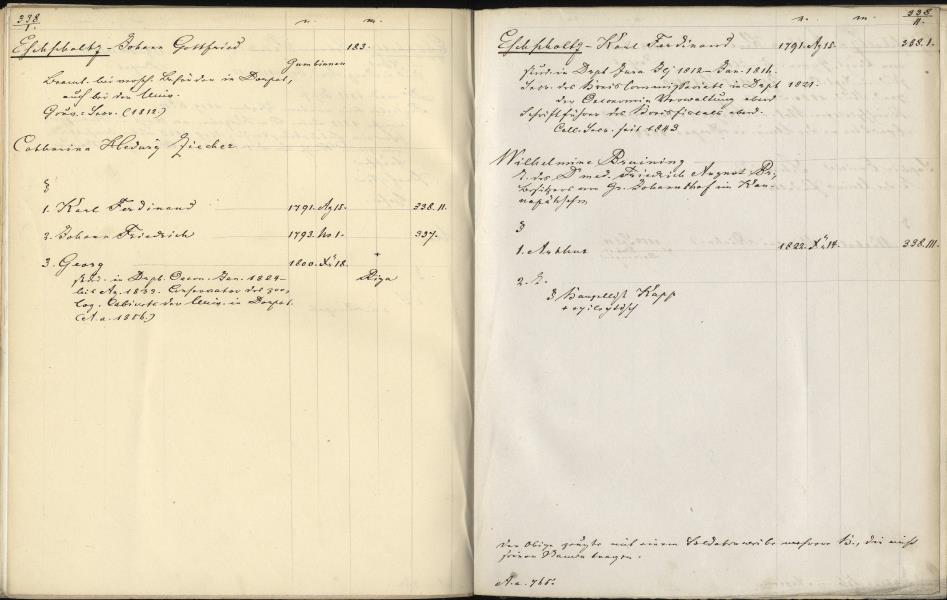 338
I.
n. m.
Eschscholtz - Johann Gottfried 183.
Gumbinnen
Beamt. bei versch. Behörden in Dorpat,
auch bei der Univ.
Gouv.-Secr. (1818)
Catharina Hedwig Ziecher
§
1. Karl Ferdinand 1791. Ag 15. 338. II.
2. Johann Friedrich 1793. No 1. 337.
3. Georg 1800. Xr 18. +
stud. in Dorpt. Oecon. Jan. 1824- Riga
bis Ag. 1832. Conservator des zoo-
log. Cabinets der Univ. in Dorpat.
(A. a. 1856.)
338
II.
n. m.
Eschscholtz - Karl Ferdinand 1791. Ag 15. 338. I.
stud. in Drpt Jura 1812- Jan. 1814.
Secr. des Kreis Commissariats in Drpt 1821.
der Oeconomie Verwaltung ebend.
Schriftführer des Kreisfiscals ebend.
Coll. Secr. seit 1843.
Wilhelmine Bruining
T. des D med. Friedrich August Br.,
Besitzers von Gr. Johannshof in Kan-
napähschen
§
1. Arthur 1822. Xr 14. 338. III.
2. T.
§ Kanzellist Kapp
+ epileptisch
Der Obige zeugte mit einem Soldatenweibe mehrere K., die nicht
seinen Namen tragen.
A. a. 765.